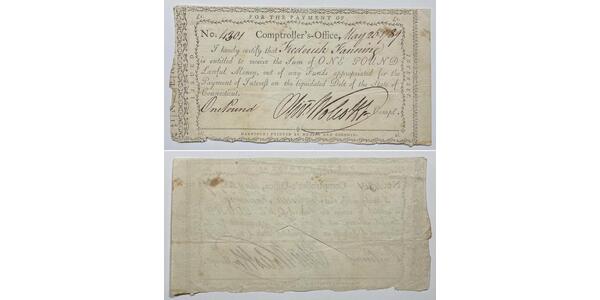 FOR THE PAYMENT OF
No. 4301 Comptroller's-Office, May 28 1789
I hereby certify that Frederick Fanning
is entitled to receive the Sum of ONE POUND
Lawful Money, out of any Funds appropriated for the
Payment of Interest on the liquidated Debt of the State of
Connecticut.
One Pound Olivr Wolcott Jr Compt.
HARTFORD: PRINTED BY HUDSON AND GOODWIN.